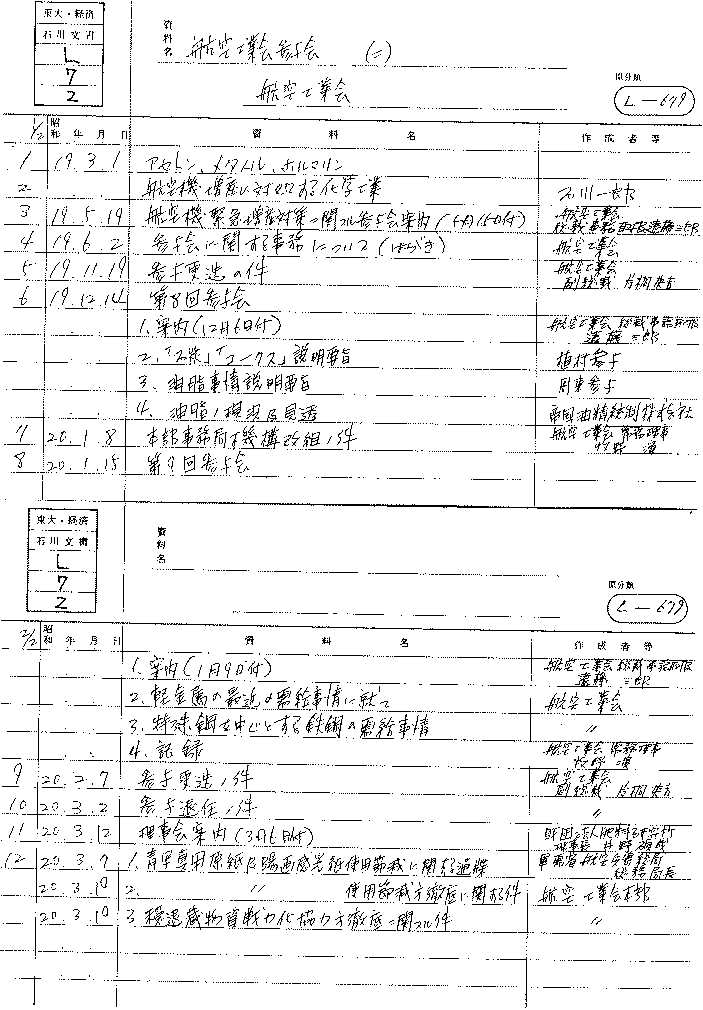 東大・経済
石川文書
L
7
2
資料名
航空工業会参与会 (二)
航空工業会
原分類
L-679
1/2 昭和 年 月 日 資 料 名 作成者等
1 19.3.1 アセトン、メタノール、ホルマリン
2 航空機増産に対処する化学工業 石川一郎
3 19.5.19 航空機緊急増産対策ニ関スル参与会案内(5月15日付) 航空工業会
総裁事務取扱遠藤三郎
4 19.6.2 参与会に関する事務について(はがき) 航空工業会
5 19.11.19 参与更迭の件 航空工業会
副総裁 片桐英吉
6 19.12.14 第8回参与会
1. 案内(12月6日付) 航空工業会総裁事務取扱
遠藤三郎
2. 「石炭」「コークス」説明要旨 植村参与
3. 油脂事情説明要旨 周東参与
4. 油脂ノ現況及見透 帝国油糧統制株式会社
7 20.1.8 本部事務局等機構改組ノ件 航空工業会 常務理事
8 20.1.15 第9回参与会
東大・経済
石川文書
L
7
2
資料名
原分類
L-679
2/2 昭和 年 月 日 資 料 名 作成者等
1. 案内(1月9日付) 航空工業会総裁事務取扱
遠藤三郎
2. 軽金属の最近の需給事情に就て 航空工業会
3. 特殊鋼を中心とする鉄鋼の需給事情 〃
4. 記録 航空工業会常務理事
9 20.2.7 参与更迭ノ件 航空工業会
副総裁 片桐英吉
10 20.3.2 参与退任ノ件 〃
11 20.3.12 理事会案内(3月6日付) 財団法人肥料研究所
理事長
12 20.3.7 1. 青写真用原紙及陽画感光紙使用節減に関する通牒 軍需省航空兵器総局
総務局長
20.3.10 2. 〃 使用節減方徹底に関する件 航空工業会本部
20.3.10 3. 積退蔵物資戦力化協力方徹底ニ関スル件 〃